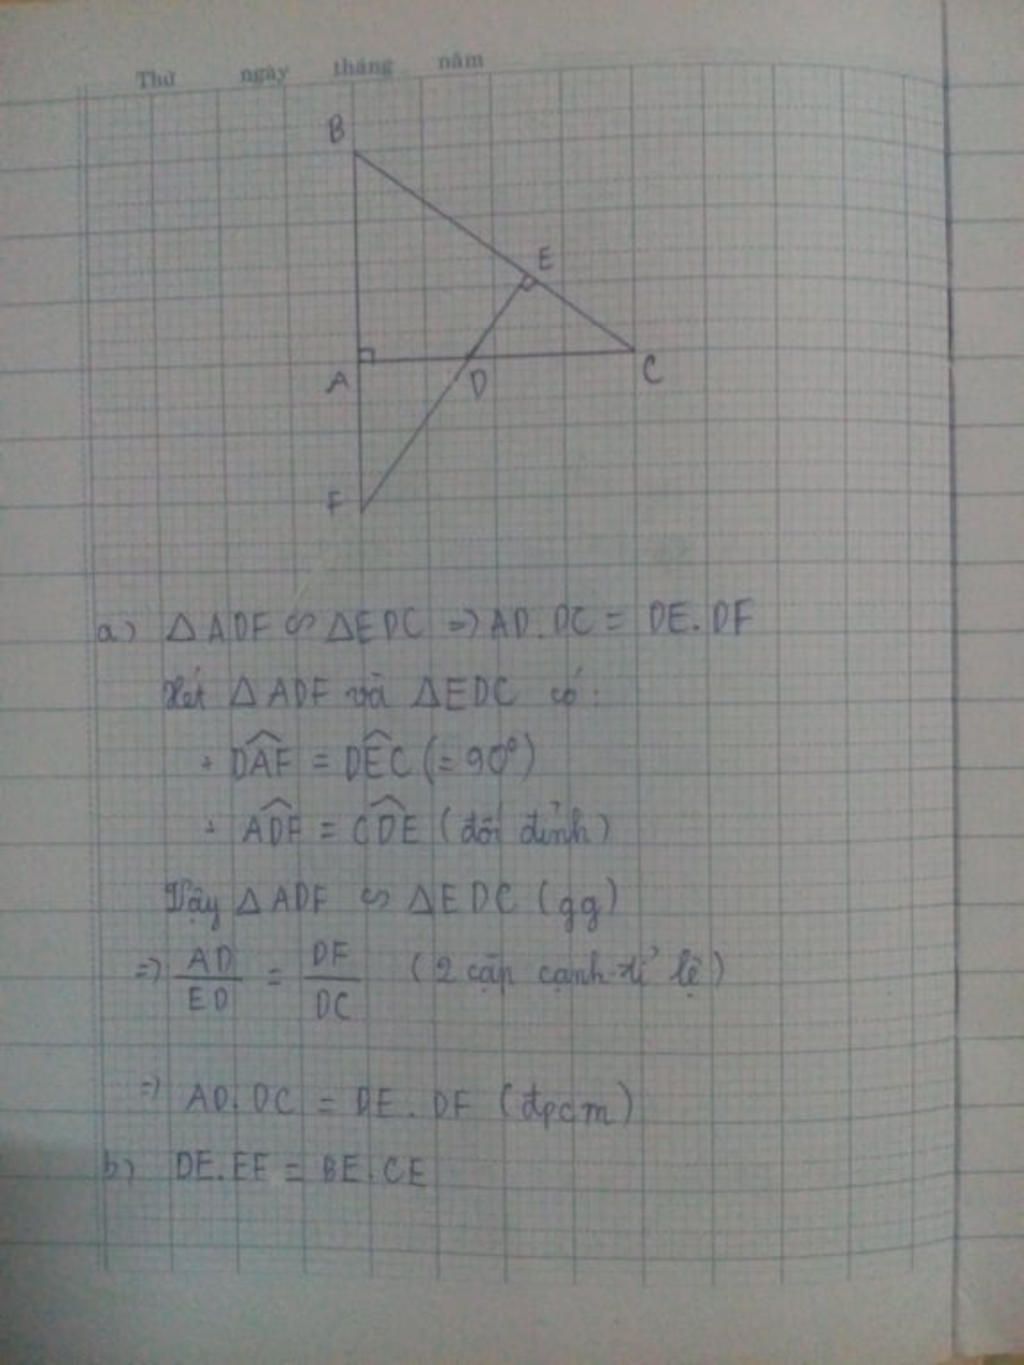 Thứ ngày tháng năm
B
E
A
D
C
F
a) ΔADF ∽ ΔEDC => AD.DC = DE.DF
Xét ΔADF và ΔEDC có:
+ \widehat{DAF} = \widehat{DEC} (= 90°)
+ \widehat{ADF} = \widehat{CDE} (đối đỉnh)
Vậy ΔADF ∽ ΔEDC (gg)
=> AD/ED = DF/DC (2 cặp cạnh tỉ lệ)
=> AD.DC = DE.DF (đpcm)
b) DE.EF = BE.CE